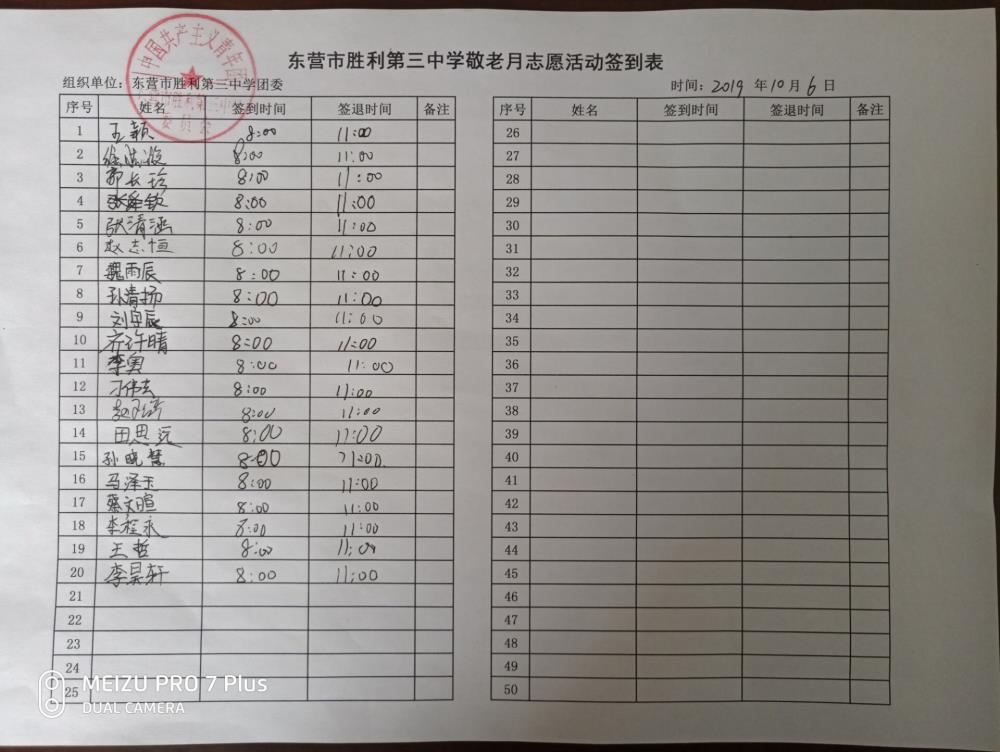 中国共产主义青年团
东营市胜利第三中学
委员会
东营市胜利第三中学敬老月志愿活动签到表
组织单位：东营市胜利第三中学团委
时间：2019 年 10 月 6 日
序号 姓名 签到时间 签退时间 备注
1 王颖 8:00 11:00
2 8:00 11:00
3 郭长珍 8:00 11:00
4 8:00 11:00
5 张清涵 8:00 11:00
6 赵志恒 8:00 11:00
7 魏雨辰 8:00 11:00
8 孙清扬 8:00 11:00
9 刘宇辰 8:00 11:00
10 乔许晴 8:00 11:00
11 李寅 8:00 11:00
12 刁伟玄 8:00 11:00
13 8:00 11:00
14 田思远 8:00 11:00
15 孙晓慧 8:00 11:00
16 马泽玉 8:00 11:00
17 蔡文暄 8:00 11:00
18 李程永 8:00 11:00
19 王哲 8:00 11:00
20 李昊轩 8:00 11:00
21
22
23
24
25
序号 姓名 签到时间 签退时间 备注
26
27
28
29
30
31
32
33
34
35
36
37
38
39
40
41
42
43
44
45
46
47
48
49
50
MEIZU PRO 7 Plus
DUAL CAMERA